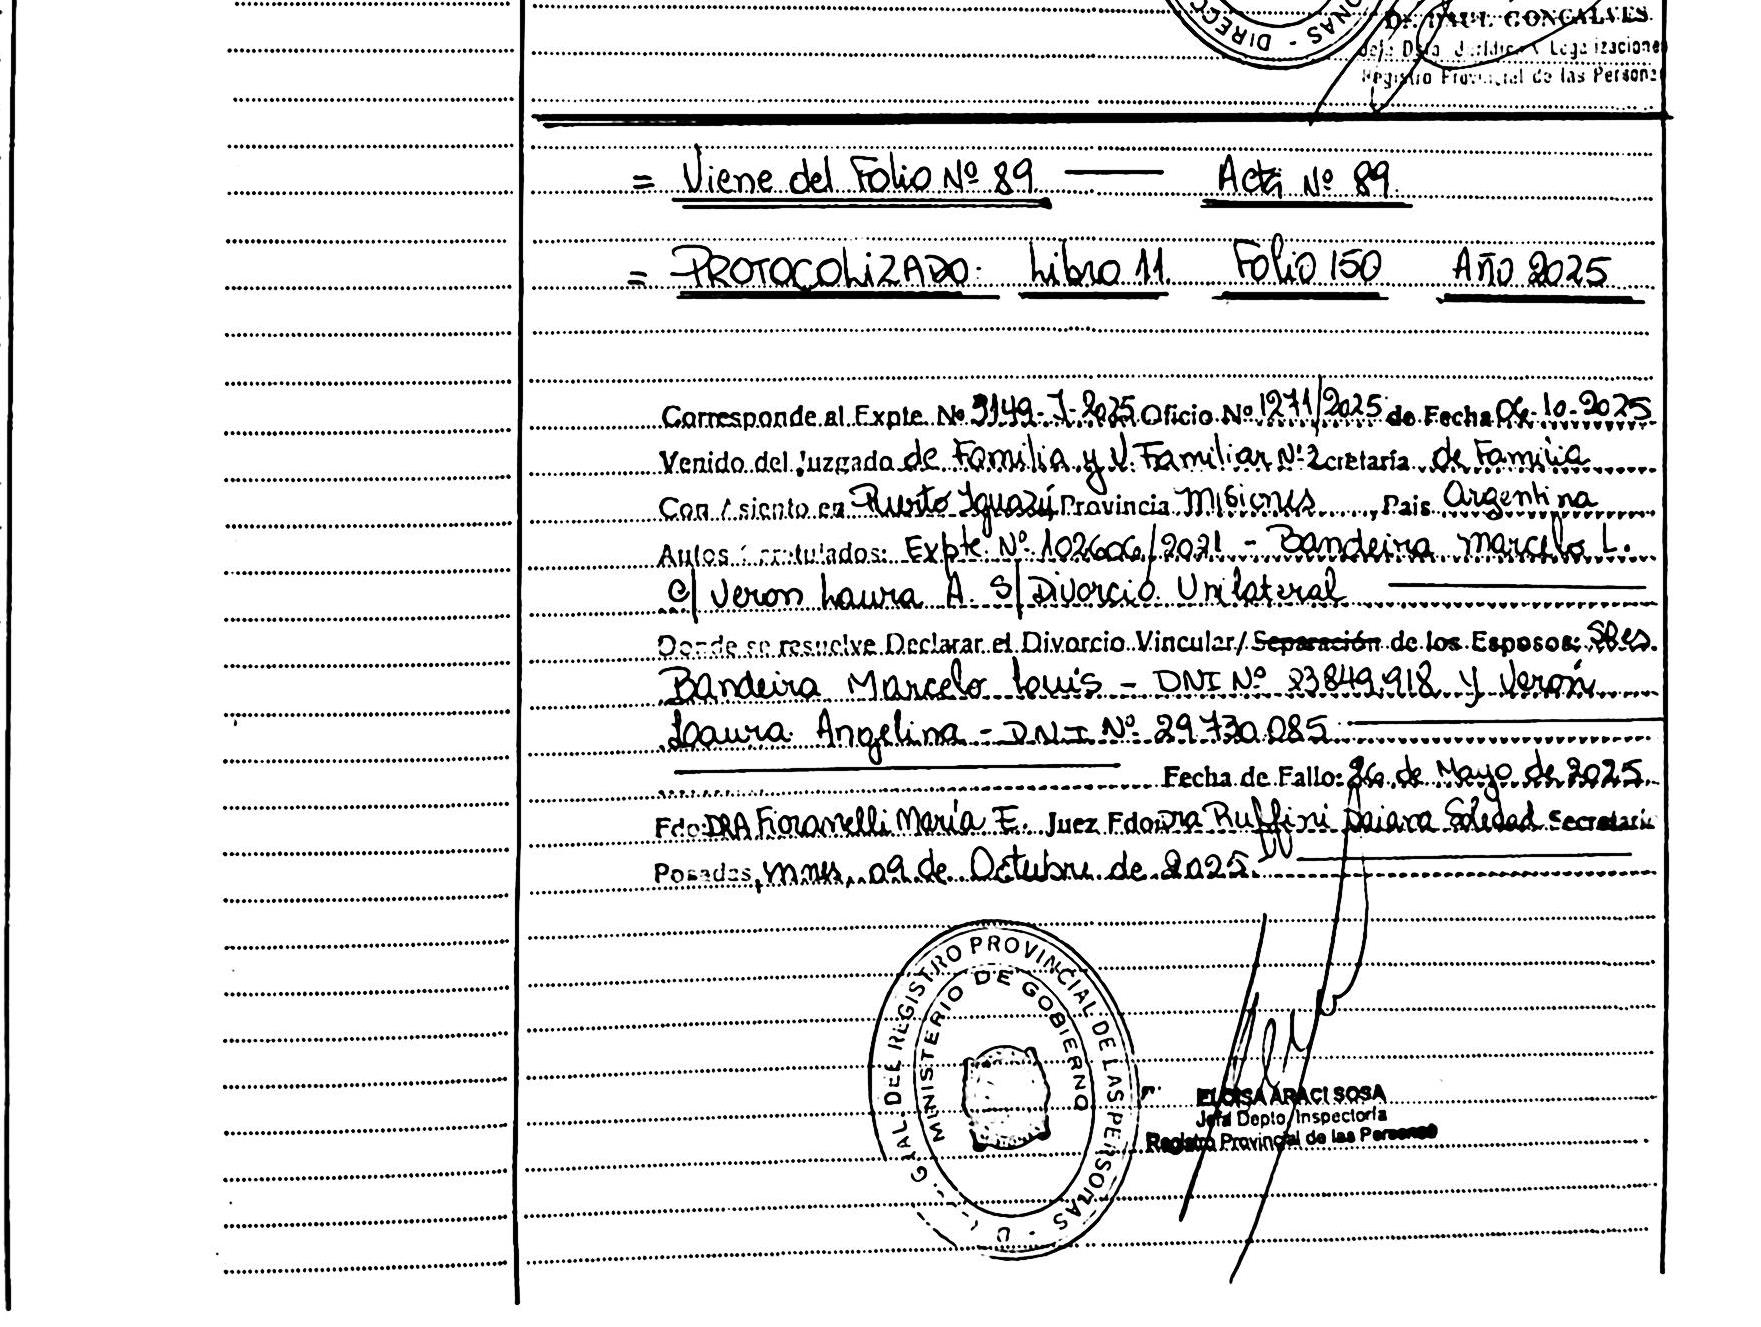 DIRECC
ONAS - DIREC
Dr. PAUL GONCALVES
Jefe Dpto. Jurídico y Legalizaciones
Registro Provincial de las Personas
= Viene del Folio Nº 89 — Acta Nº 89
= PROTOCOLIZADO: Libro 11. Folio 150 Año 2025
Corresponde al Expte. Nº 9149-J-2025 Oficio Nº 1271/2025 de Fecha 06-10-2025
Venido del Juzgado de Familia y V. Familiar Nº 2 cretaría de Familia
Con Asiento en Puerto Iguazú Provincia Misiones País Argentina
Autos Caratulados: Expte Nº 102606/2021 - Bandeira Marcelo L.
C/ Veron Laura A. S/ Divorcio Unilateral
Donde se resuelve Declarar el Divorcio Vincular/ Separación de los Esposos: Sres.
Bandeira Marcelo Louis - DNI Nº 23849.918 y Verón
Laura Angelina - DNI Nº 29.730.085
Fecha de Fallo: 26 de Mayo de 2025
Fdo: DRA Fioranelli María E. Juez Fdo: Dra Ruffini Daiana Soledad Secretaria
Posadas, Mnes, 09 de Octubre de 2025.
GRAL. DEL REGISTRO PROVINCIAL DE LAS PERSONAS
MINISTERIO DE GOBIERNO
ELOISA ARACI SOSA
Jefa Depto. Inspectoría
Registro Provincial de las Personas